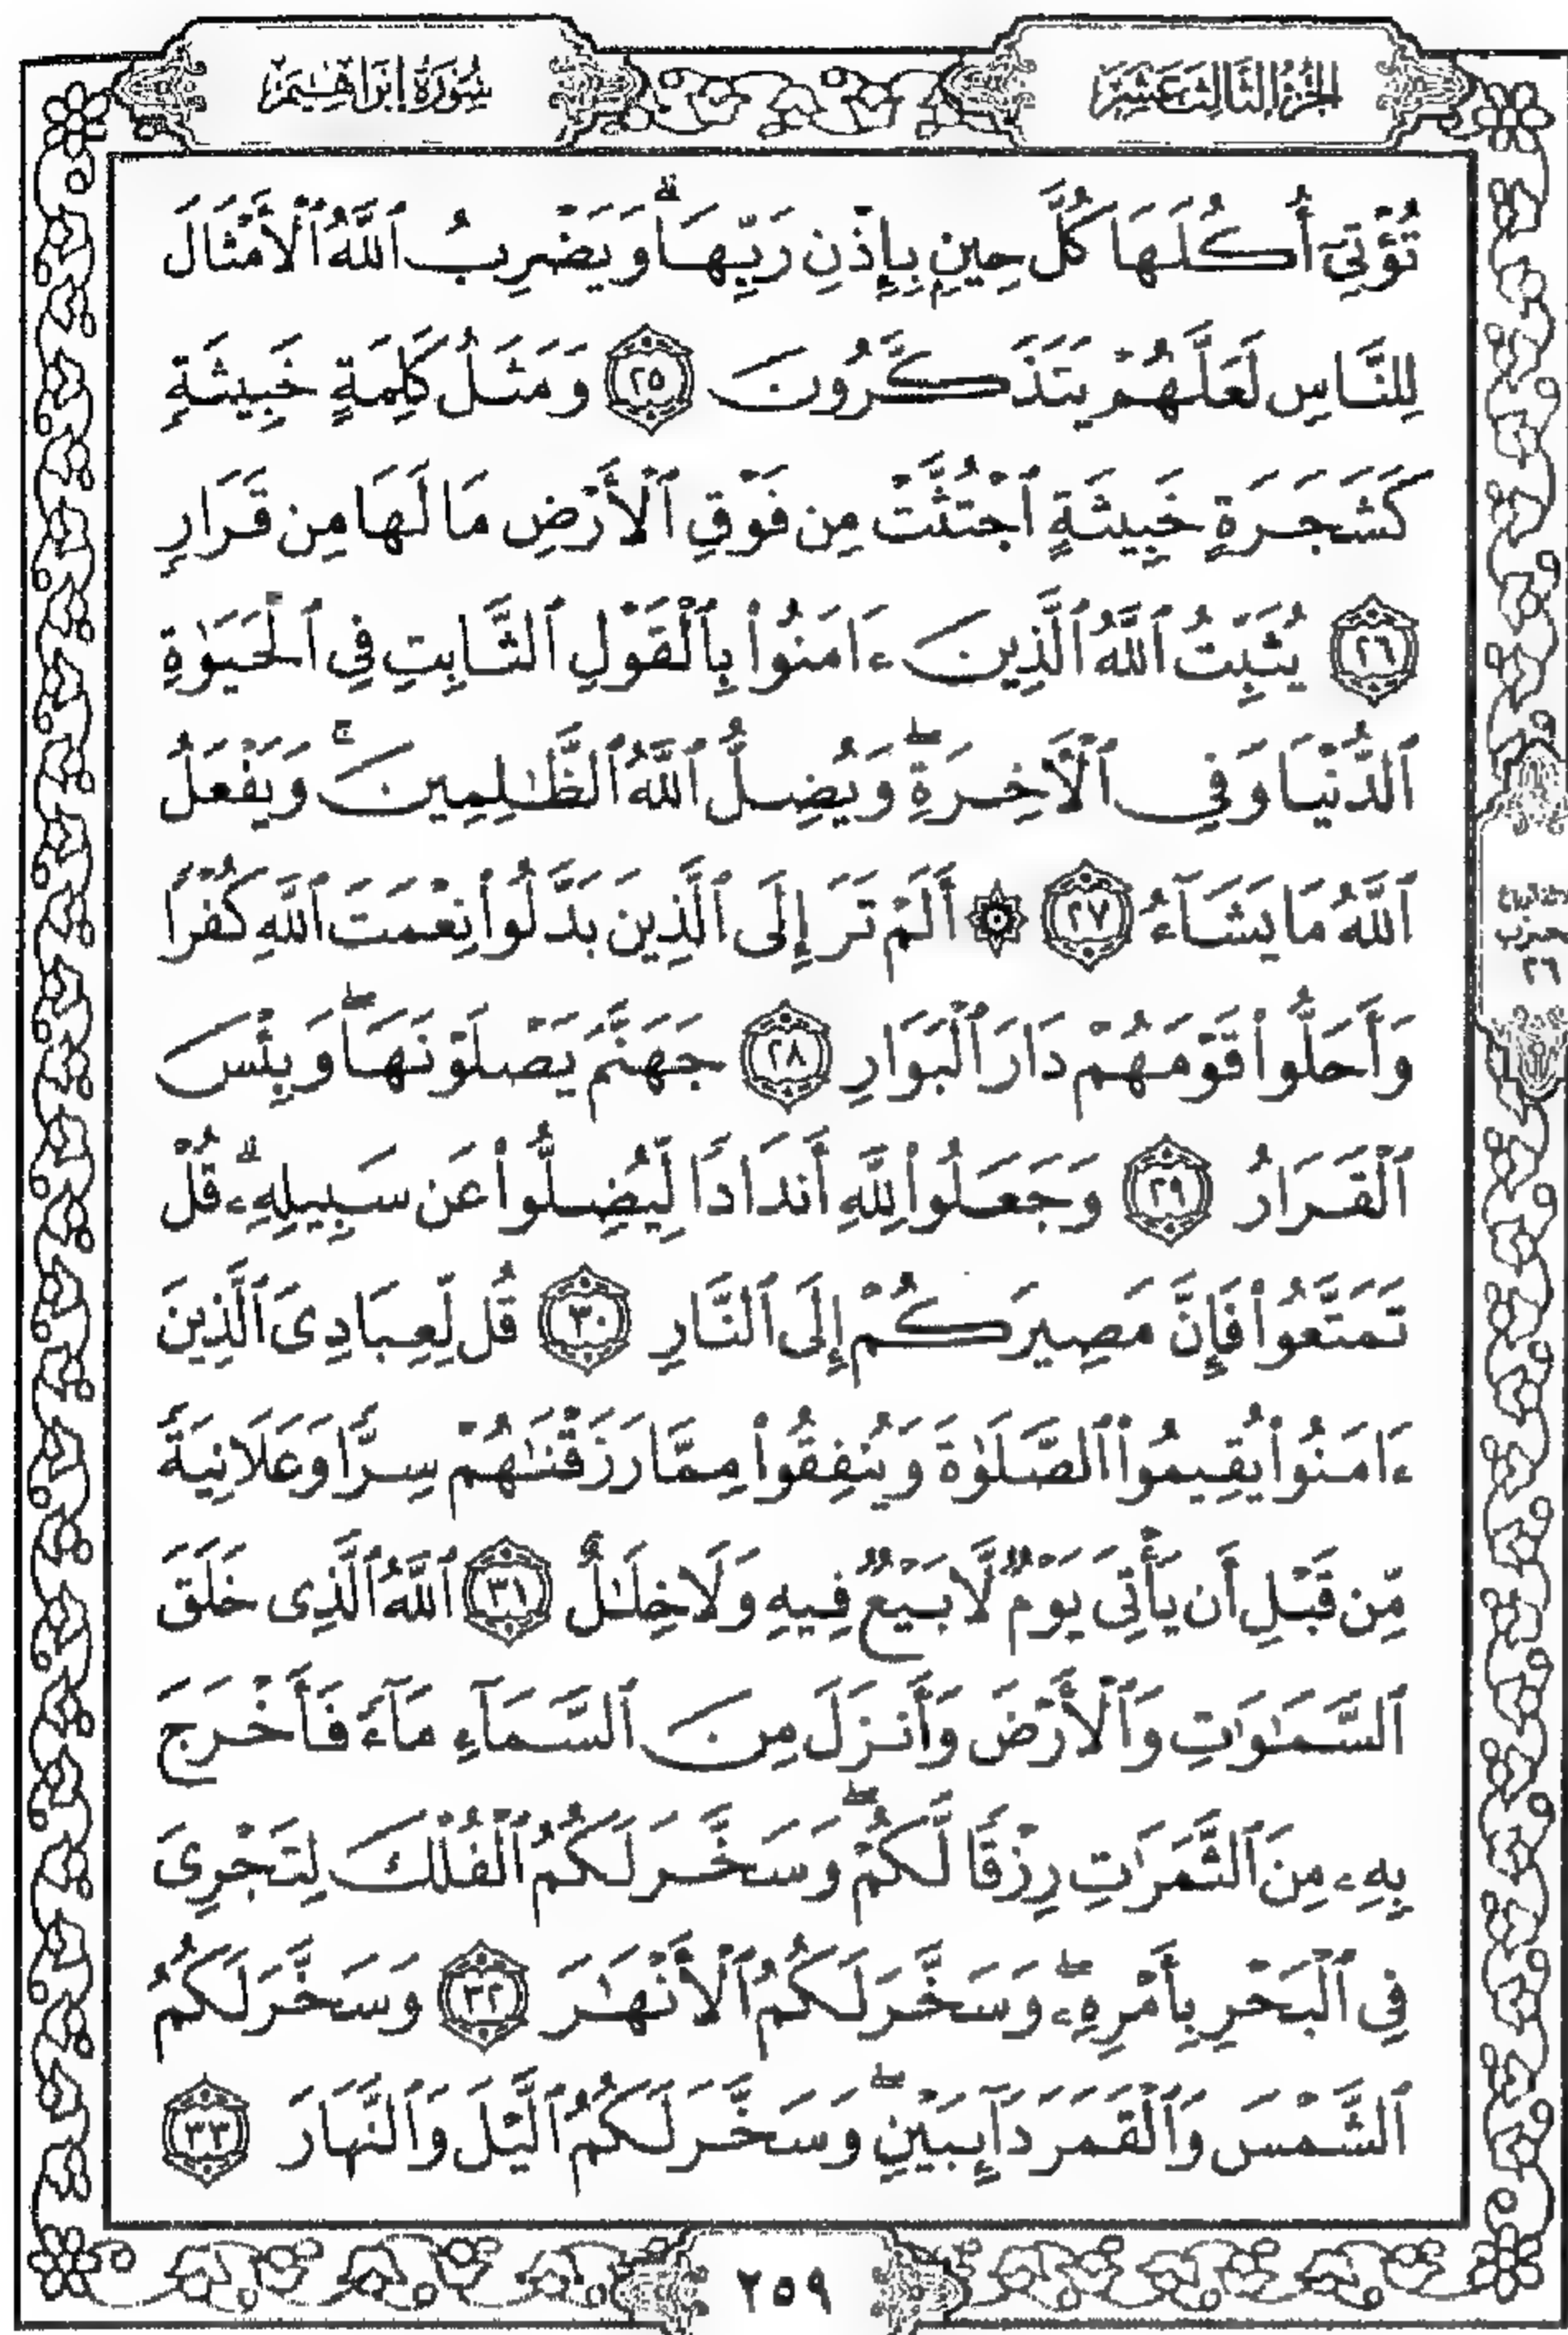 الجزء الثالث عشر
سورة إبراهيم
تُؤْتِىٓ أُكُلَهَا كُلَّ حِينٍۭ بِإِذْنِ رَبِّهَاۗ وَيَضْرِبُ ٱللَّهُ ٱلْأَمْثَالَ
لِلنَّاسِ لَعَلَّهُمْ يَتَذَكَّرُونَ ٢٥ وَمَثَلُ كَلِمَةٍ خَبِيثَةٍ
كَشَجَرَةٍ خَبِيثَةٍ ٱجْتُثَّتْ مِن فَوْقِ ٱلْأَرْضِ مَا لَهَا مِن قَرَارٍ
٢٦ يُثَبِّتُ ٱللَّهُ ٱلَّذِينَ ءَامَنُوا۟ بِٱلْقَوْلِ ٱلثَّابِتِ فِى ٱلْحَيَوٰةِ
ٱلدُّنْيَا وَفِى ٱلْءَاخِرَةِۖ وَيُضِلُّ ٱللَّهُ ٱلظَّٰلِمِينَۚ وَيَفْعَلُ
ٱللَّهُ مَا يَشَآءُ ٢٧ ۞ أَلَمْ تَرَ إِلَى ٱلَّذِينَ بَدَّلُوا۟ نِعْمَتَ ٱللَّهِ كُفْرًا
وَأَحَلُّوا۟ قَوْمَهُمْ دَارَ ٱلْبَوَارِ ٢٨ جَهَنَّمَ يَصْلَوْنَهَاۖ وَبِئْسَ
ٱلْقَرَارُ ٢٩ وَجَعَلُوا۟ لِلَّهِ أَندَادًا لِّيُضِلُّوا۟ عَن سَبِيلِهِۦۗ قُلْ
تَمَتَّعُوا۟ فَإِنَّ مَصِيرَكُمْ إِلَى ٱلنَّارِ ٣٠ قُل لِّعِبَادِىَ ٱلَّذِينَ
ءَامَنُوا۟ يُقِيمُوا۟ ٱلصَّلَوٰةَ وَيُنفِقُوا۟ مِمَّا رَزَقْنَٰهُمْ سِرًّا وَعَلَانِيَةً
مِّن قَبْلِ أَن يَأْتِىَ يَوْمٌ لَّا بَيْعٌ فِيهِ وَلَا خِلَٰلٌ ٣١ ٱللَّهُ ٱلَّذِى خَلَقَ
ٱلسَّمَٰوَٰتِ وَٱلْأَرْضَ وَأَنزَلَ مِنَ ٱلسَّمَآءِ مَآءً فَأَخْرَجَ
بِهِۦ مِنَ ٱلثَّمَرَٰتِ رِزْقًا لَّكُمْۖ وَسَخَّرَ لَكُمُ ٱلْفُلْكَ لِتَجْرِىَ
فِى ٱلْبَحْرِ بِأَمْرِهِۦۖ وَسَخَّرَ لَكُمُ ٱلْأَنْهَٰرَ ٣٢ وَسَخَّرَ لَكُمُ
ٱلشَّمْسَ وَٱلْقَمَرَ دَآئِبَيْنِۖ وَسَخَّرَ لَكُمُ ٱلَّيْلَ وَٱلنَّهَارَ ٣٣
حزب
٢٦
٢٥٩